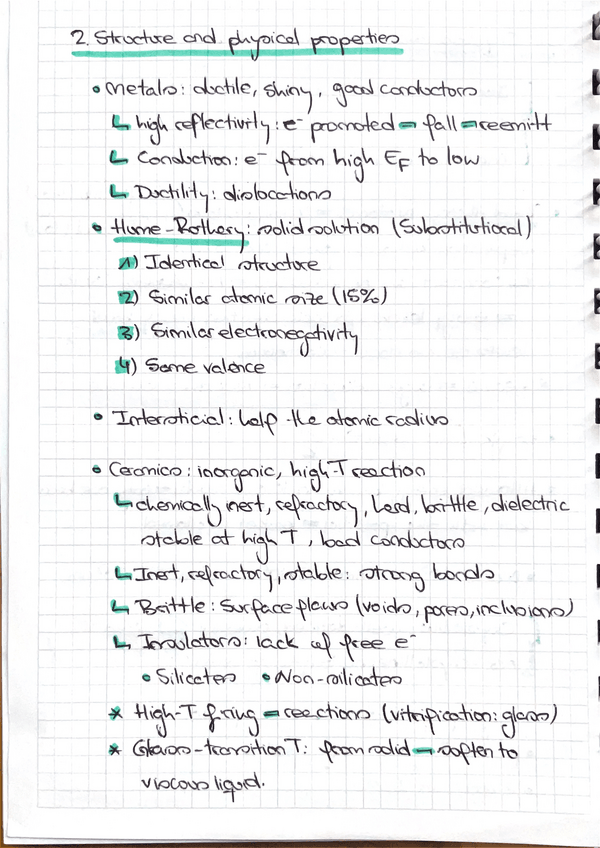 2. Structure and physical properties
• Metals: ductile, shiny, good conductors
↳ high reflectivity: e⁻ promoted → fall → reemitt
↳ Conduction: e⁻ from high E_F to low
↳ Ductility: dislocations
• Hume-Rothery: solid solution (Substitutional)
1) Identical structure
2) Similar atomic size (15%)
3) Similar electronegativity
4) Same valence
• Intersticial: half the atomic radius
• Ceramics: inorganic, high-T reaction
↳ chemically inert, refractory, hard, brittle, dielectric
stable at high T, bad conductors
↳ Inert, refractory, stable: strong bonds
↳ Brittle: Surface flaws (voids, pores, inclusions)
↳ Insulators: lack of free e⁻
• Silicates • Non-silicates
* High-T firing → reactions (vitrification: glass)
* Glass-transition T: from solid → soften to
viscous liquid.